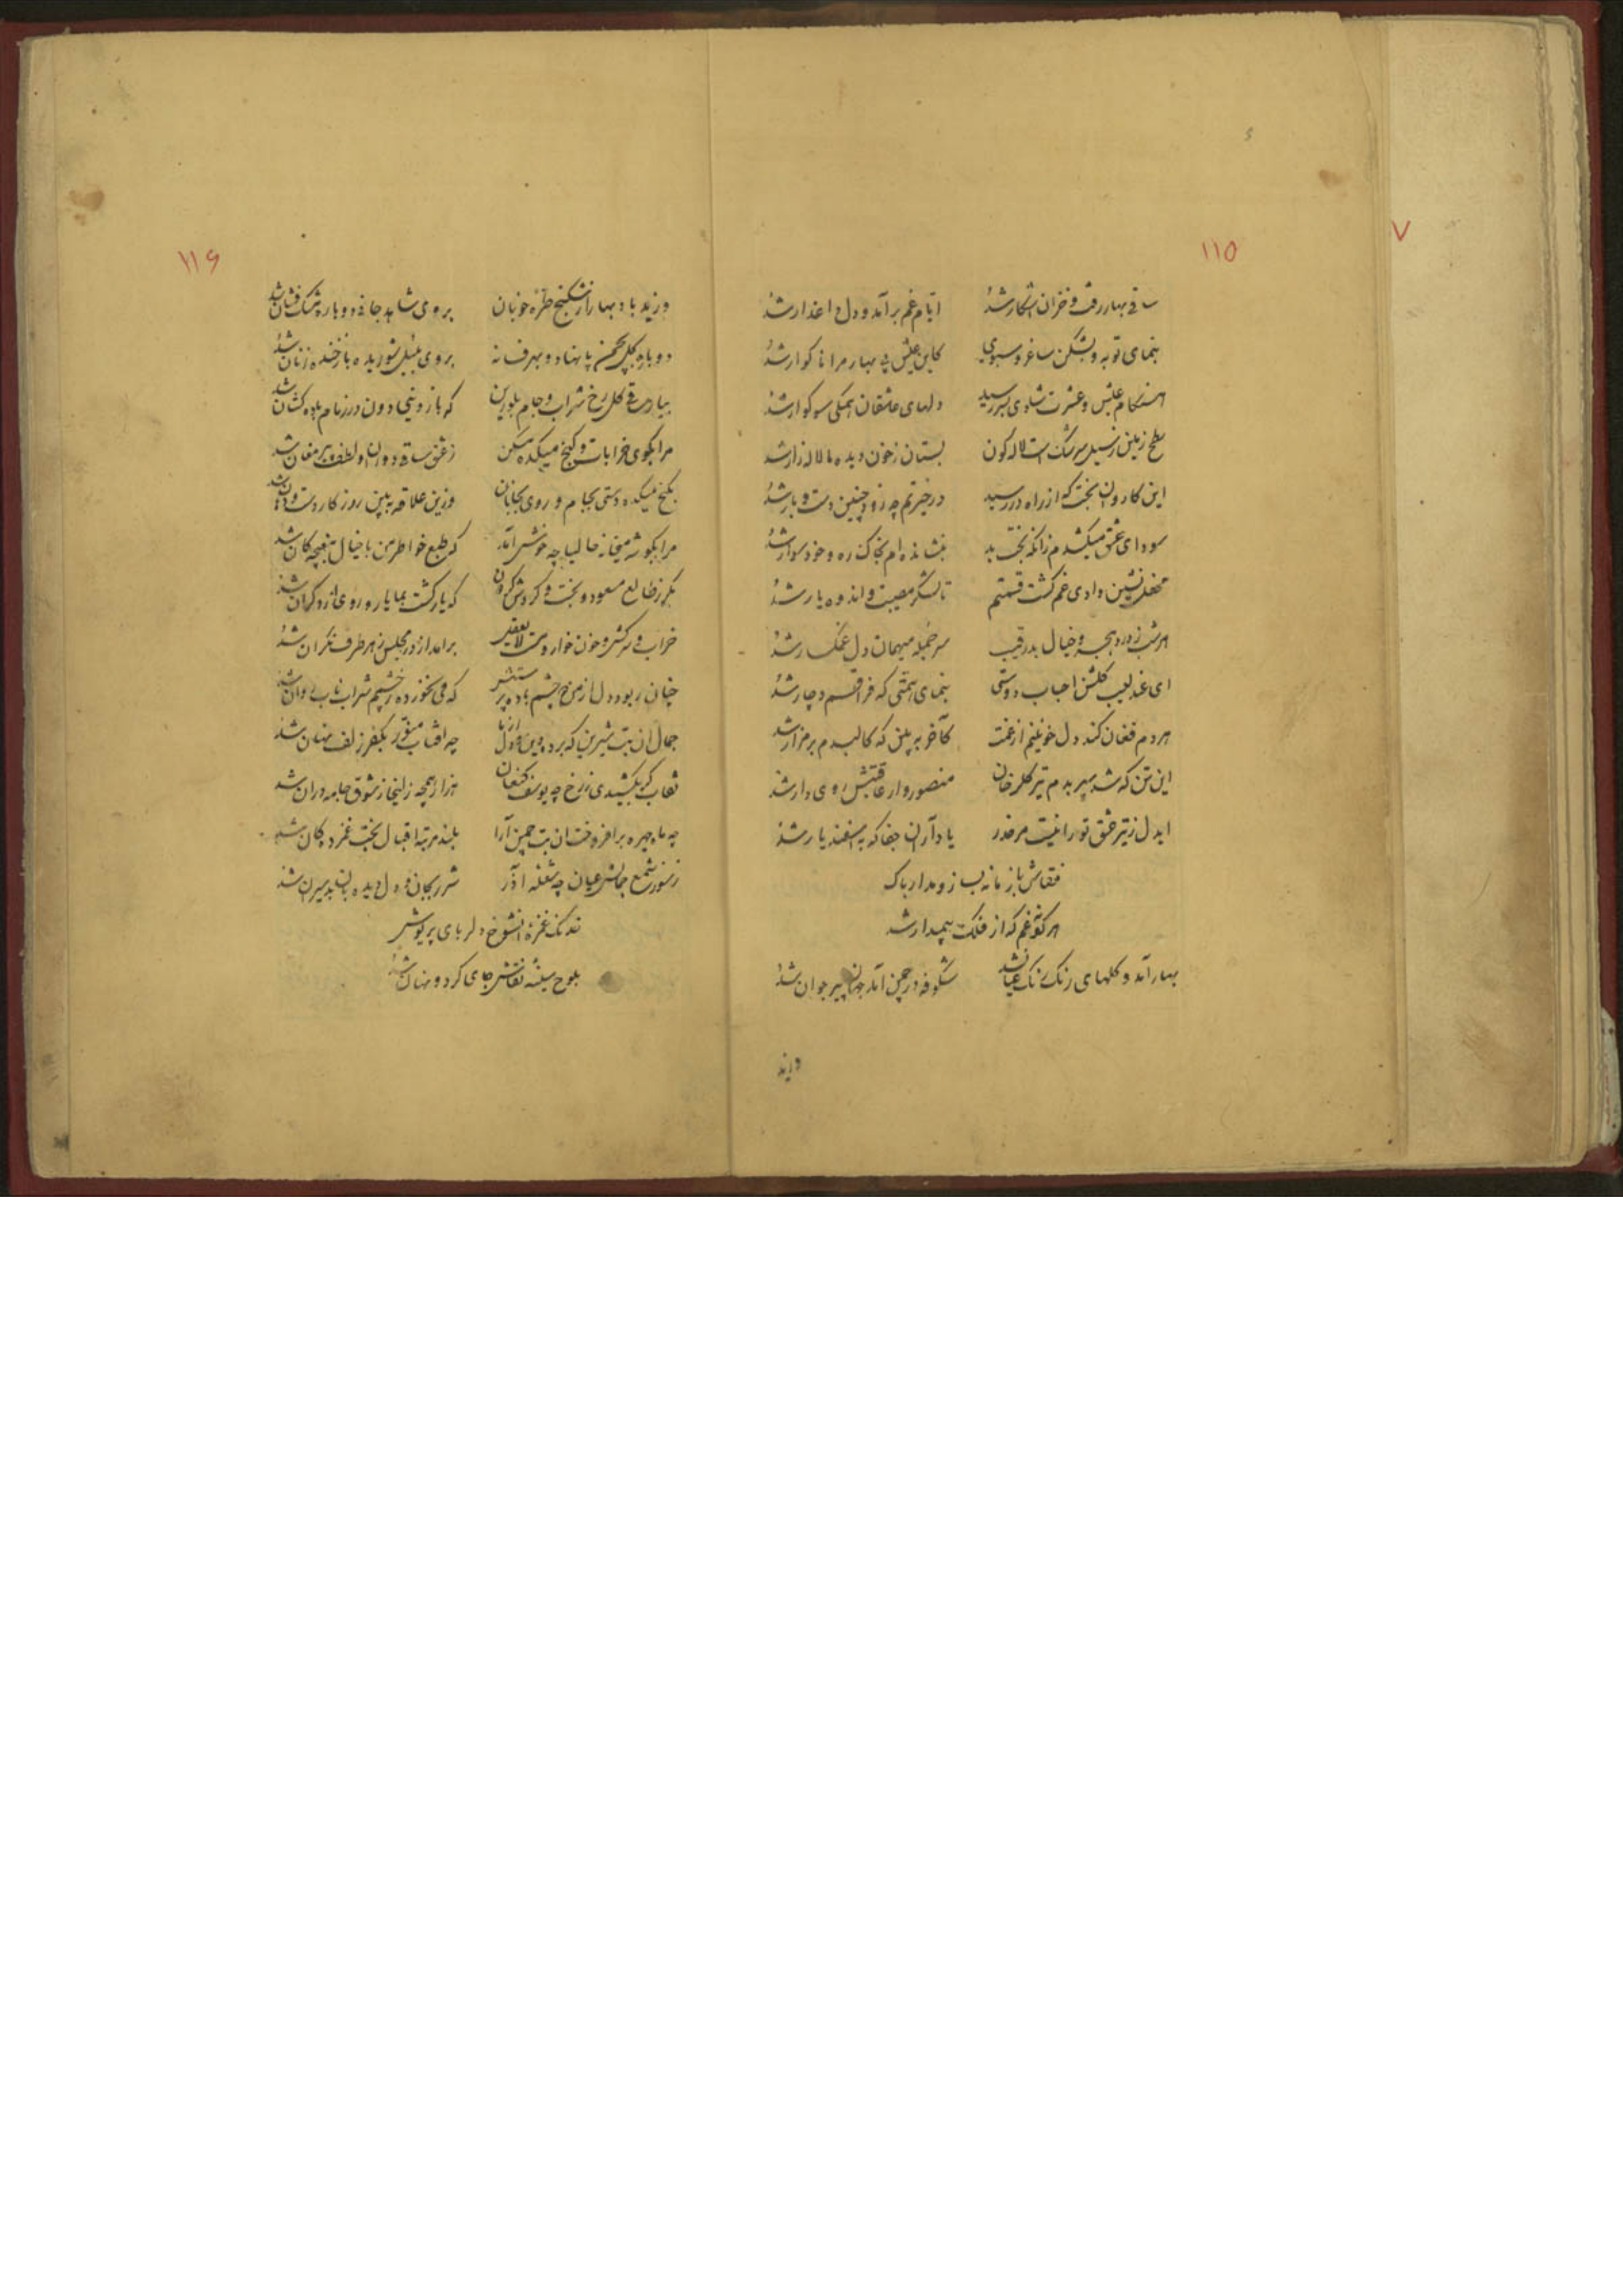 ۷
۱۱۵
ساقی بهار رفت و خزان آشکار شد ایام غم برآمد و دل داغدار شد
بنمای توبه و بشکن ساغر و سبوی کاین عیش بی بهار مرا ناگوار شد
هنگام عیش و عشرت شادی بسر رسید دلهای عاشقان همگی سوگوار شد
سطح زمین ز سیل سرشک است لاله گون بستان ز خون دیده ما لاله زار شد
این کاروان بخت که از راه در رسید در حیرتم چه زود چنین دست و بار شد
سودای عشق میکشدم زانکه بخت بد بنشانده ام بخاک ره و خود سوار شد
محفل نشین وادی غم گشت قسمتم تا لشکر مصیبت و اندوه یار شد
هر شب ز درد هجر و خیال بد رقیب سر جمله میهمان دل غمگسار شد
ای عندلیب گلشن احباب دوستی بنمای همتی که فراقم دچار شد
هر دم فغان کند دل خونینم از غمت کآخر به بین که کالبدم بر مزار شد
این تن که شد سپر بدم تیر گلرخان منصور وار عاقبتش روی دار شد
ایدل ز تیر عشق تو را نیست مر حذر یاد آر از آن جفا که به اسفندیار شد
نقاش با زمانه بساز و مدار باک
هر گونه غم که از فلکت پیمدار شد
بهار آمد و گلهای رنگ رنگ عیان شد شکوفه در چمن آمد جهان پیر جوان شد
وزید
۱۱۶
وزید باد بهار از شکنج طره خوبان بروی شاهد جان دوباره مشک فشان شد
دوباره گل بچمن پا نهاد و بهر فسانه بروی بلبل شوریده باز خنده زنان شد
بیار ساقی گل رخ شراب و جام بلورین که باز و نی دون در زنام باده کشان شد
مرا بکوی خرابات و کنج میکده مسکن ز عشق ساقی دوران و لطف پیر مغان شد
بکنج میکده دستی بجام و روی بجانان وزین علاقه ببین روزگار دست و دهان شد
مرا بگوشه میخانه حالیا چه خوش آمد که طبع خواطر من با خیال مغبچه کان شد
مگر ز طالع مسعود و بخت و گردش گردون که یار گشت بما یار و روی از دگران شد
خراب و سرکش و خون خوار و مست لایعقل برامد از در مجلس ز هر طرف نگران شد
چنان ربود دل از من چشم باده پرستش که می نخورده ز چشمم شراب ناب روان شد
جمال آن بت شیرین که برد دین و دل از ما چه آفتاب منور بکفر زلف نهان شد
نقاب گر بکشیدی ز رخ چه یوسف کنعان هزار همچه زلیخا ز شوق جامه دران شد
چه ماه چهره برافروخت آن بت چمن آرا بلند مرتبه اقبال بخت غمزدگان شد
ز نور شمع جمالش عیان چه شعله آذر شرر بجان و دل و دیده
خدنگ غمزه آن شوخ دلربای پریوش
بلوح سینه نقاش جای کرد و نهان شد